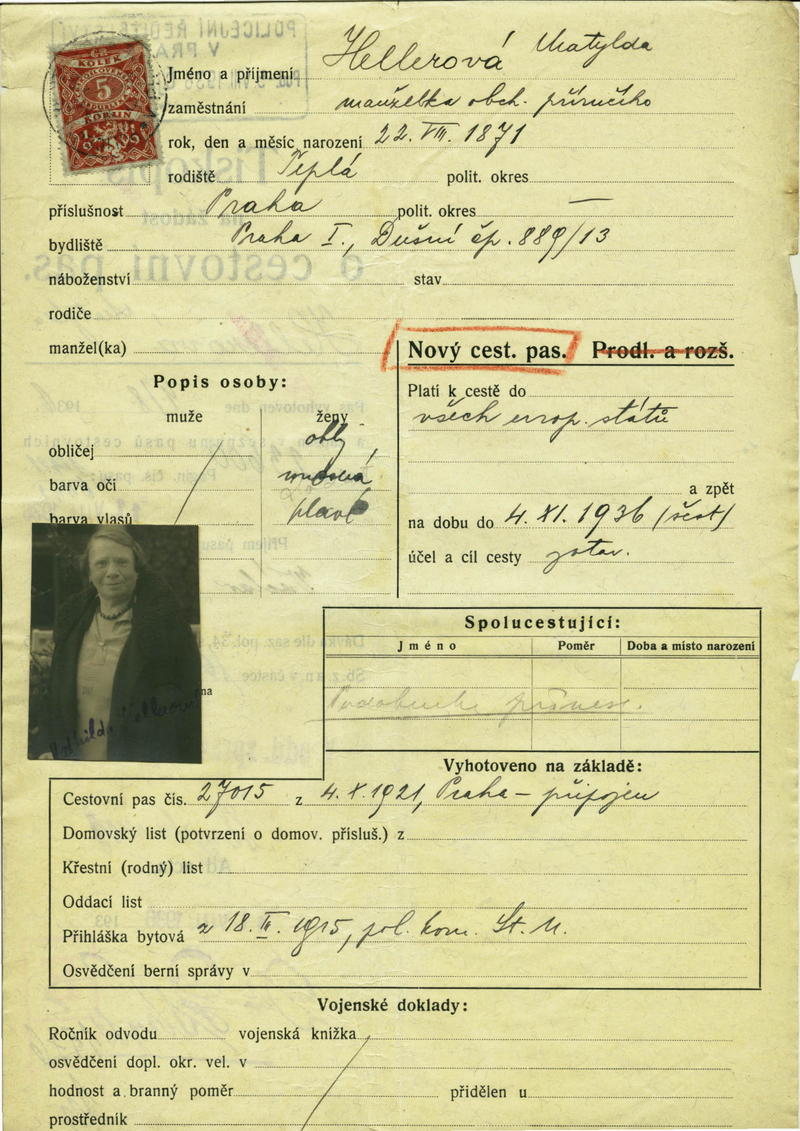 KOLEK
5
KORUN
Jméno a příjmení Hellerová Matylda
zaměstnání manželka obch. příručího
rok, den a měsíc narození 22. VIII. 1871
rodiště Teplá polit. okres
příslušnost Praha polit. okres —
bydliště Praha I., Dušní čp. 889/13
náboženství stav
rodiče
manžel(ka)
Nový cest. pas. Prodl. a rozš.
Popis osoby:
muže ženy
obličej oblý
barva očí
barva vlasů plavé
Platí k cestě do
všech evrop. států
a zpět
na dobu do 4. XI. 1936 (šest)
účel a cíl cesty zotav.
Spolucestující:
Jméno Poměr Doba a místo narození
Vyhotoveno na základě:
Cestovní pas čís. 27015 z 4. X. 1921, Praha – připojen
Domovský list (potvrzení o domov. přísluš.) z
Křestní (rodný) list
Oddací list
Přihláška bytová z 18. II. 1915, pol. kom. St. M.
Osvědčení berní správy v
Vojenské doklady:
Ročník odvodu vojenská knížka
osvědčení dopl. okr. vel. v
hodnost a branný poměr přidělen u
prostředník